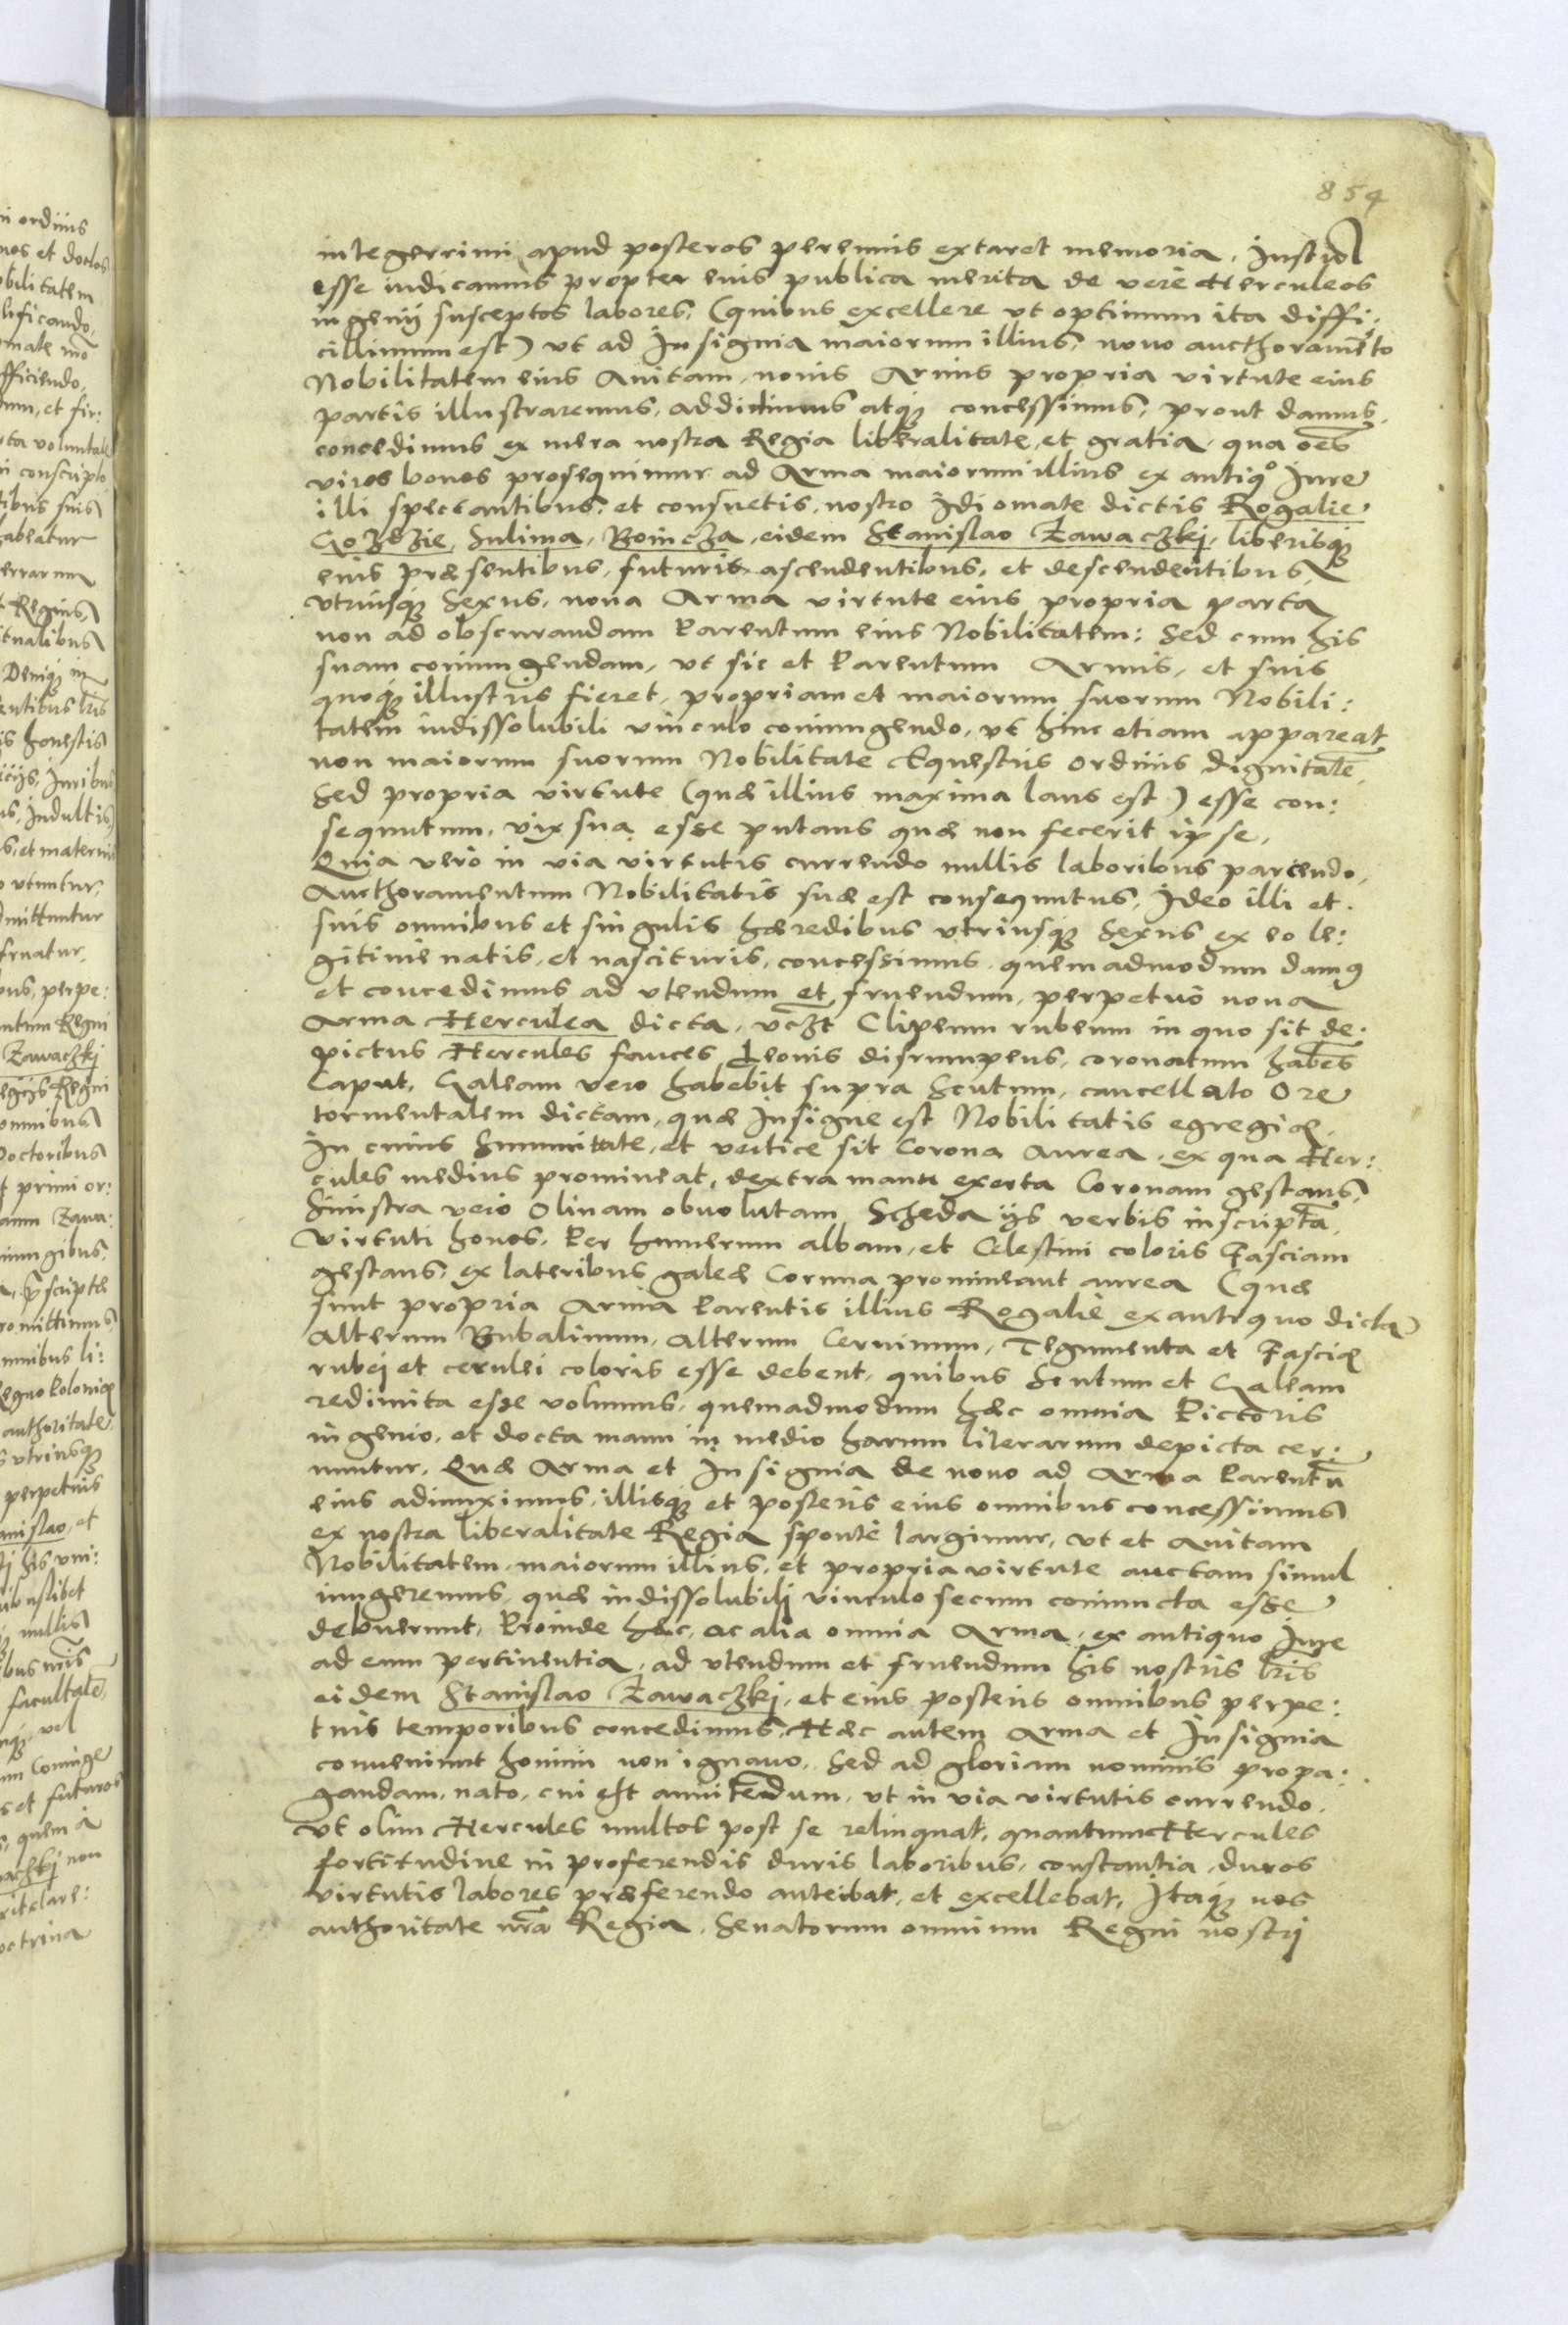 854
integerrimi apud posteros perennis extaret memoria, Iustum
esse iudicamus propter eius publica merita de vere Herculeos
ingenij susceptos labores, (quibus excellere ut optimum ita diffi:
cillimum est) ut ad Insignia maiorum illius, novo aucthoramēto
Nobilitatem eius Avitam, novis Armis propria virtute eius
partis illustraremus, addidimus atq; concessimus, prout damus,
concedimus ex mera nostra Regia liberalitate, et gratia, qua oēs
viros bonos prosequimur ad Arma maiorum illius ex antiqo Iure
illi spectantibus, et consuetis, nostro Idiomate dictis Rogalie
Gozdzie, Sulima, Boincza, eidem Stanislao Zawaczkj, liberisq;
eius præsentibus, futuris ascendentibus, et descendentibus
utriusq; Sexus, nova Arma virtute eius propria parta
non ad obscurandam Parentum eius Nobilitatem: Sed cum his
suam coniungendam, ut sic et Parentum Armis, et suis
quoq; illustris fieret, propriam et maiorum suorum Nobili:
tatem indissolubili vinculo coniungendo, ut hinc etiam appareat
non maiorum suorum Nobilitate Equestris ordinis dignitatē,
Sed propria virtute (quæ illius maxima laus est) esse con:
sequutum, vix sua esse putans quæ non fecerit ipse,
Quia vero in via virtutis currendo nullis laboribus parcendo,
Aucthoramentum Nobilitatis suæ est consequutus, Ideo illi et
suis omnibus et singulis hæredibus utriusq; Sexus ex eo le:
gitime natis, et nascituris, concessimus quemadmodum damus
et concedimus ad utendum et fruendum, perpetuo nova
Arma Herculea dicta, vczt Clipeum rubeum in quo sit de:
pictus Hercules fauces Leonis disrumpens, coronatum habēs
Caput, Galeam vero habebit supra Scutum, cancellato Ore
tormentalem dictam, quæ Insigne est Nobilitatis egregiæ,
In cuius Summitate, et vertice sit Corona Aurea, ex qua Her:
cules medius promineat, dextra manu exerta Coronam gestans,
Sinistra vero Olivam obvolutam Scheda ijs verbis inscripta,
Virtuti honos, Per humerum albam, et Celestini coloris Fasciam
gestans, ex lateribus galeæ Cornua promineant aurea (quæ
sunt propria Arma Parentis illius Rogalie ex antiquo dicta)
Alterum Bubalinum, Alterum Cervinum, Tegumenta et Fasciæ
rubej et cerulei coloris esse debent, quibus Scutum et Galeam
redimita esse volumus, quemadmodum hæc omnia Pictoris
ingenio, et docta manu in medio harum literarum depicta cer:
nuntur, Quæ Arma et Insignia de novo ad Arma Parentū
eius adiunximus, illisq; et posteris eius omnibus concessimus
ex nostra liberalitate Regia sponte largimur, ut et avitam
Nobilitatem maiorum illius, et propria virtute auctam simul
iungeremus, quæ indissolubilj vinculo secum coniuncta esse
debuerunt, Proinde hæc, ac alia omnia Arma, ex antiquo Iure
ad eum pertinentia, ad utendum et fruendum his nostris lris
eidem Stanislao Zawaczkj, et eius posteris omnibus perpe:
tuis temporibus concedimus, Hæc autem Arma et Insignia
conveniunt homini non ignavo, Sed ad gloriam nominis propa:
gandam, nato, cui est annitendum, ut in via virtutis currendo,
ut olim Hercules multos post se relinquat, quantum Hercules
fortitudine in proferendis duris laboribus, constantia, duros
virtutis labores præferendo anteibat, et excellebat, Itaq; nos
authoritate nrā Regia, Senatorum omnium Regni nostrj